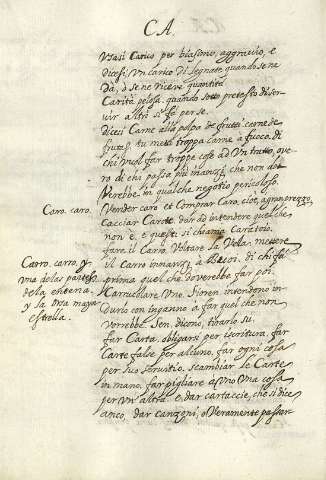 CA.
Usasi Carico per biasimo, aggravio, e
dicesi, Un carico di legnate quando se ne
dà, ò se ne riceve quantità
Carità pelosa. quando sotto pretesto di ser-
vir altri si fà per se.
Dicesi Carne alla polpa de frutti. carne de
frutti, tu metti troppa carne à fuoco, di
chi vuol far troppe cose ad Un tratto, ove-
ro di chi passa più inanzi che non dov-
verebbe in qualche negotio pericoloso.
Coro. caro.
Vender caro et Comprar Caro, cioè, a gran prezzo
Cacciar Carote. dar ad intendere quel che
non è, e questi si chiama Carotaio.
Carro. carro, y
una de las partes
de la entena.
y la Orsa mayor
estrella.
fare il Carro. Voltare la Vela. mettere
il Carro innanzi à Buovi, di chi fà
prima quel che doverebbe far poi.
Carrucolare Uno. Fioren. intendono in-
durlo con inganno à far quel che non
vorrebbe. Sen. dicono, tirarlo su.
far Carta. obligarsi per iscrittura. far
Carte false per alcuno, far ogni cosa
per suo servitio. scambiar le Carte
in mano. far pigliare à Uno Una cosa
per Un' altra. e dar cartaccie, che si dice
anco, dar canzoni, o veramente passar-